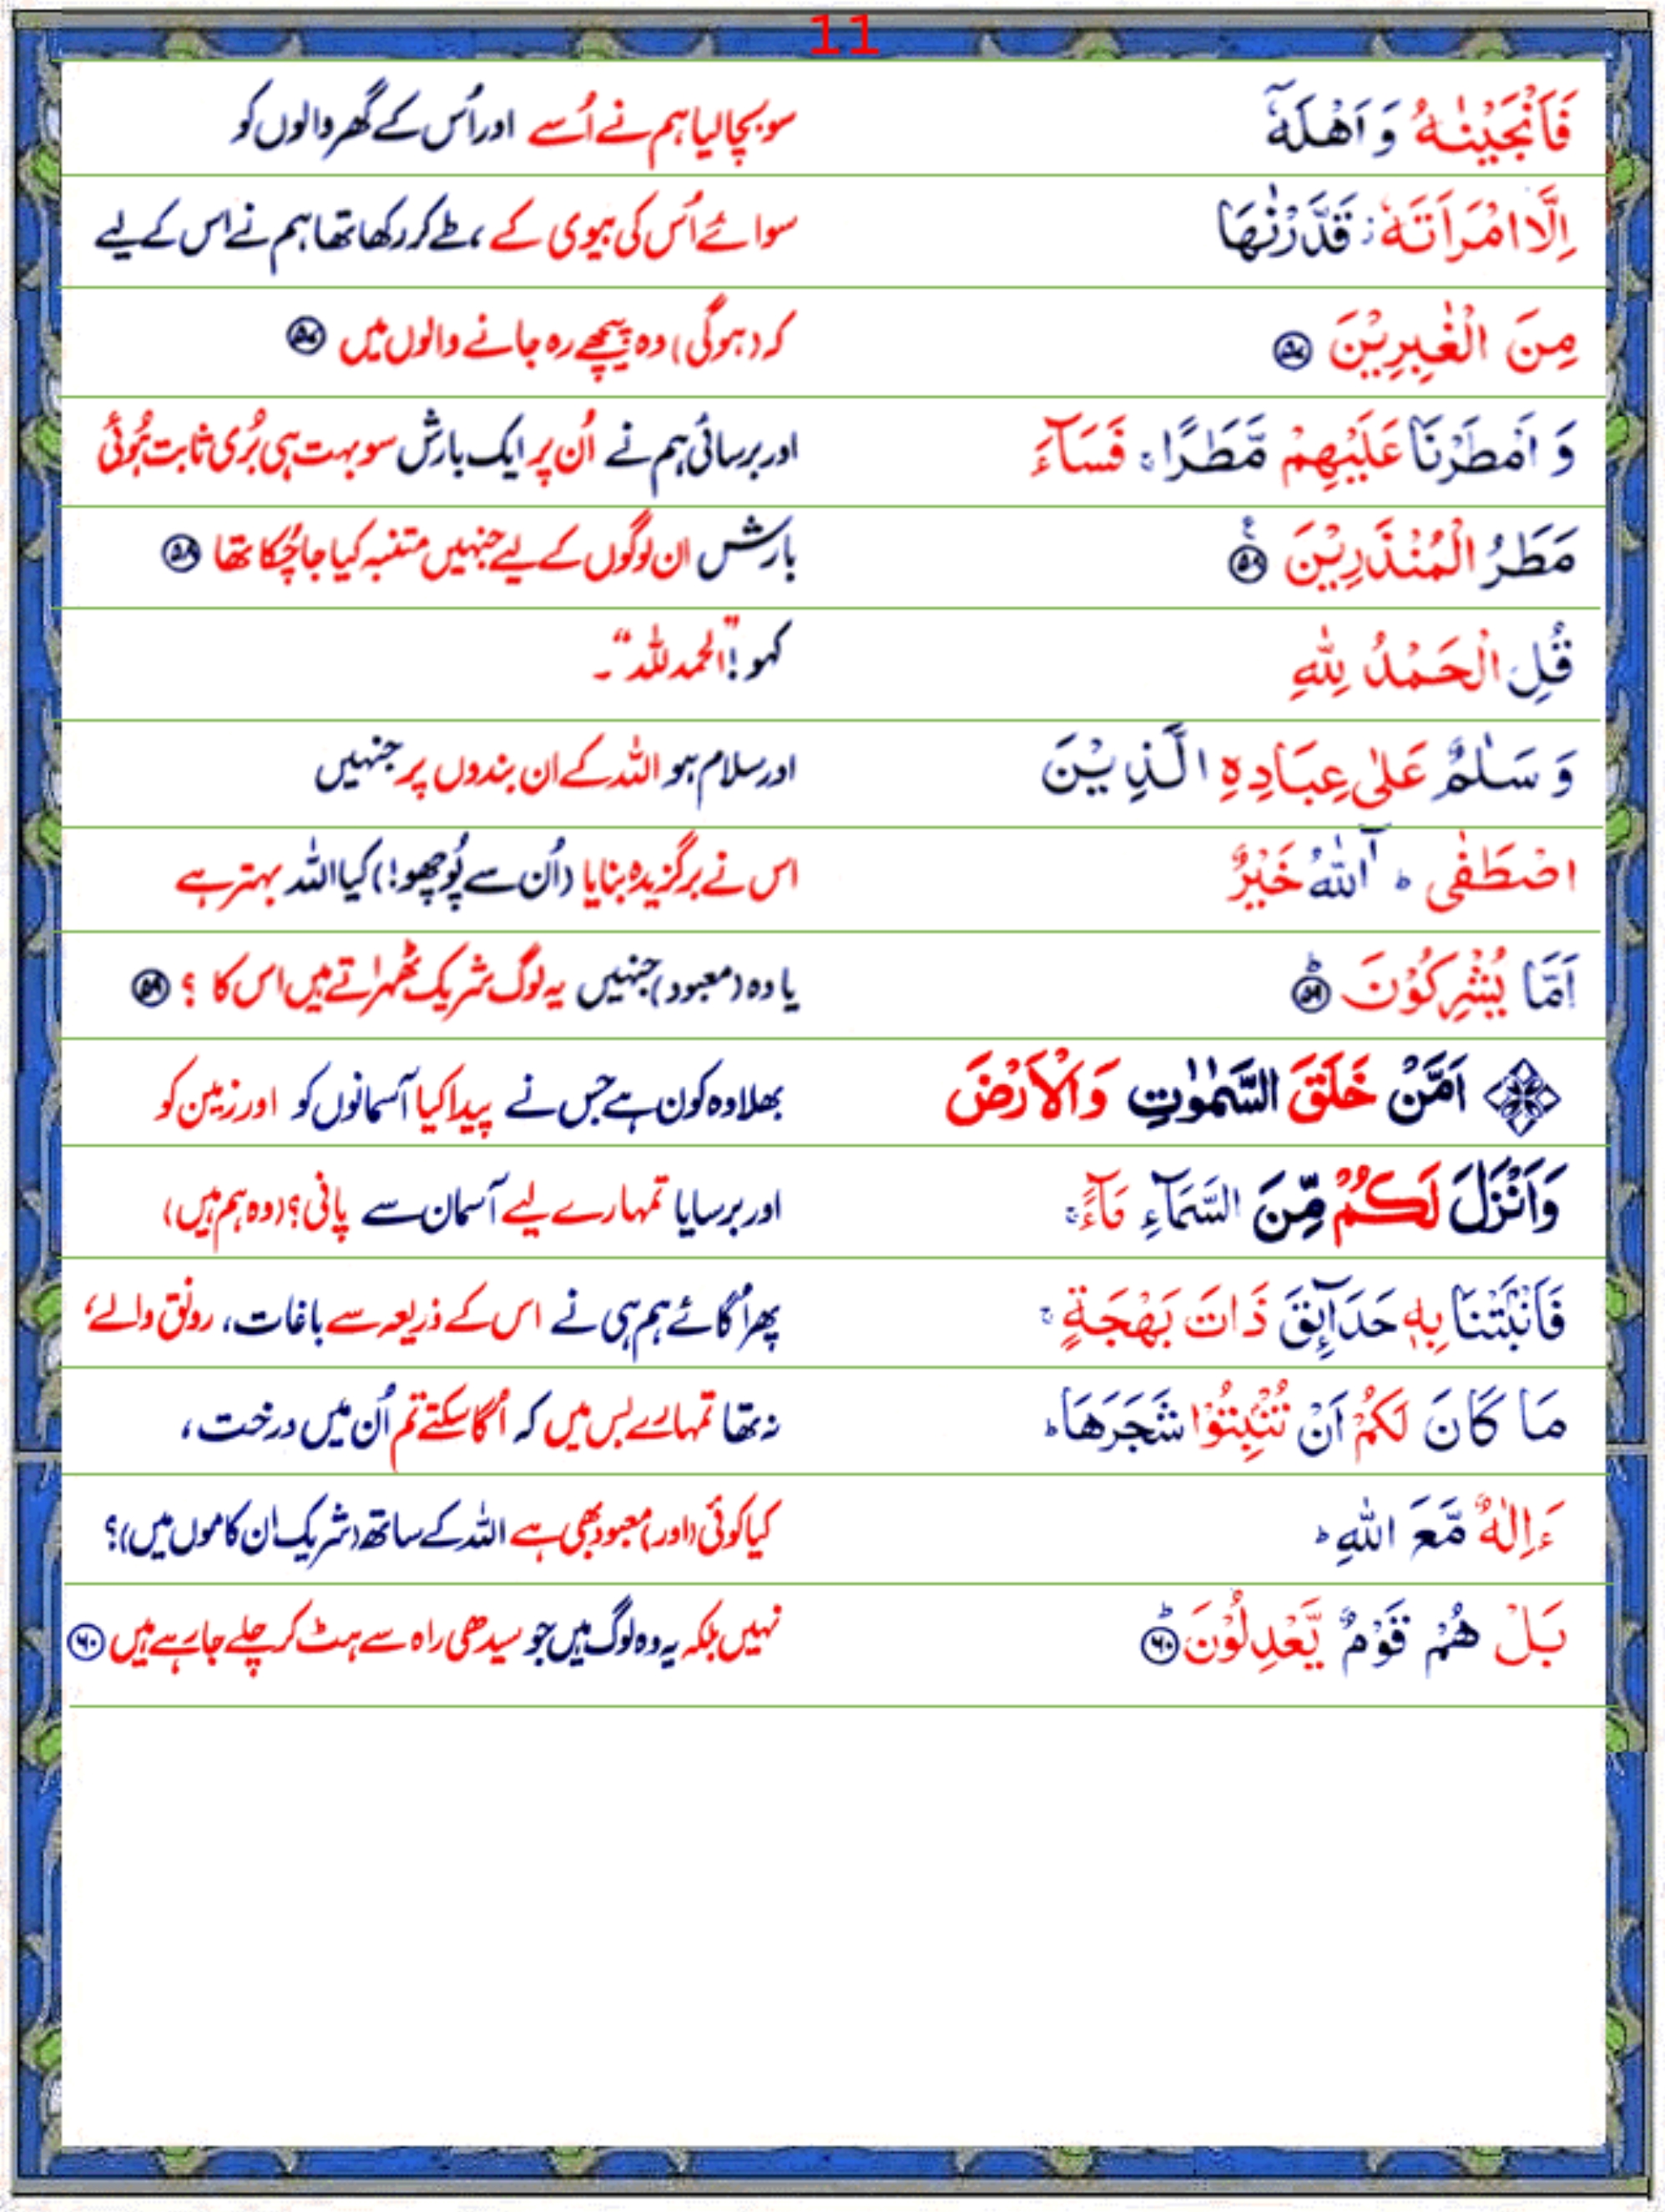 11
فَاَنْجَيْنٰهُ وَ اَهْلَهٗۤ سو بچا لیا ہم نے اُسے اور اُس کے گھر والوں کو
اِلَّا امْرَاَتَهٗ ؗ قَدَّرْنٰهَا سوائے اُس کی بیوی کے، طے کر رکھا تھا ہم نے اس کے لیے
مِنَ الْغٰبِرِيْنَ ﴿۵۷﴾ کہ (ہوگی) وہ پیچھے رہ جانے والوں میں ﴿۵۷﴾
وَ اَمْطَرْنَا عَلَيْهِمْ مَّطَرًا ۚ فَسَآءَ اور برسائی ہم نے اُن پر ایک بارش سو بہت ہی بُری ثابت ہُوئی
مَطَرُ الْمُنْذَرِيْنَ ﴿۵۸﴾ ع بارش ان لوگوں کے لیے جنہیں متنبہ کیا جا چُکا تھا ﴿۵۸﴾
قُلِ الْحَمْدُ لِلّٰهِ کہو! ”الحمدللہ“۔
وَ سَلٰمٌ عَلٰى عِبَادِهِ الَّذِيْنَ اور سلام ہو اللہ کے ان بندوں پر جنہیں
اصْطَفٰى ؕ آٰللّٰهُ خَيْرٌ اس نے برگزیدہ بنایا (اُن سے پُوچھو!) کیا اللہ بہتر ہے
اَمَّا يُشْرِكُوْنَ ﴿۵۹﴾ؕ یا وہ (معبود) جنہیں یہ لوگ شریک ٹھہراتے ہیں اس کا ؟ ﴿۵۹﴾
اَمَّنْ خَلَقَ السَّمٰوٰتِ وَالْاَرْضَ بھلا وہ کون ہے جس نے پیدا کیا آسمانوں کو اور زمین کو
وَاَنْزَلَ لَكُمْ مِّنَ السَّمَآءِ مَآءً ۚ اور برسایا تمہارے لیے آسمان سے پانی؟ (وہ ہم ہیں)
فَاَنْۢبَتْنَا بِهٖ حَدَآئِقَ ذَاتَ بَهْجَةٍ ۚ پھر اُگائے ہم ہی نے اس کے ذریعہ سے باغات، رونق والے،
مَا كَانَ لَكُمْ اَنْ تُنْۢبِتُوْا شَجَرَهَا ؕ نہ تھا تمہارے بس میں کہ اُگا سکتے تم اُن میں درخت،
ءَاِلٰهٌ مَّعَ اللّٰهِ ؕ کیا کوئی (اور) معبود بھی ہے اللہ کے ساتھ (شریک ان کاموں میں)؟
بَلْ هُمْ قَوْمٌ يَّعْدِلُوْنَ ﴿۶۰﴾ؕ نہیں بلکہ یہ وہ لوگ ہیں جو سیدھی راہ سے ہٹ کر چلے جا رہے ہیں ﴿۶۰﴾